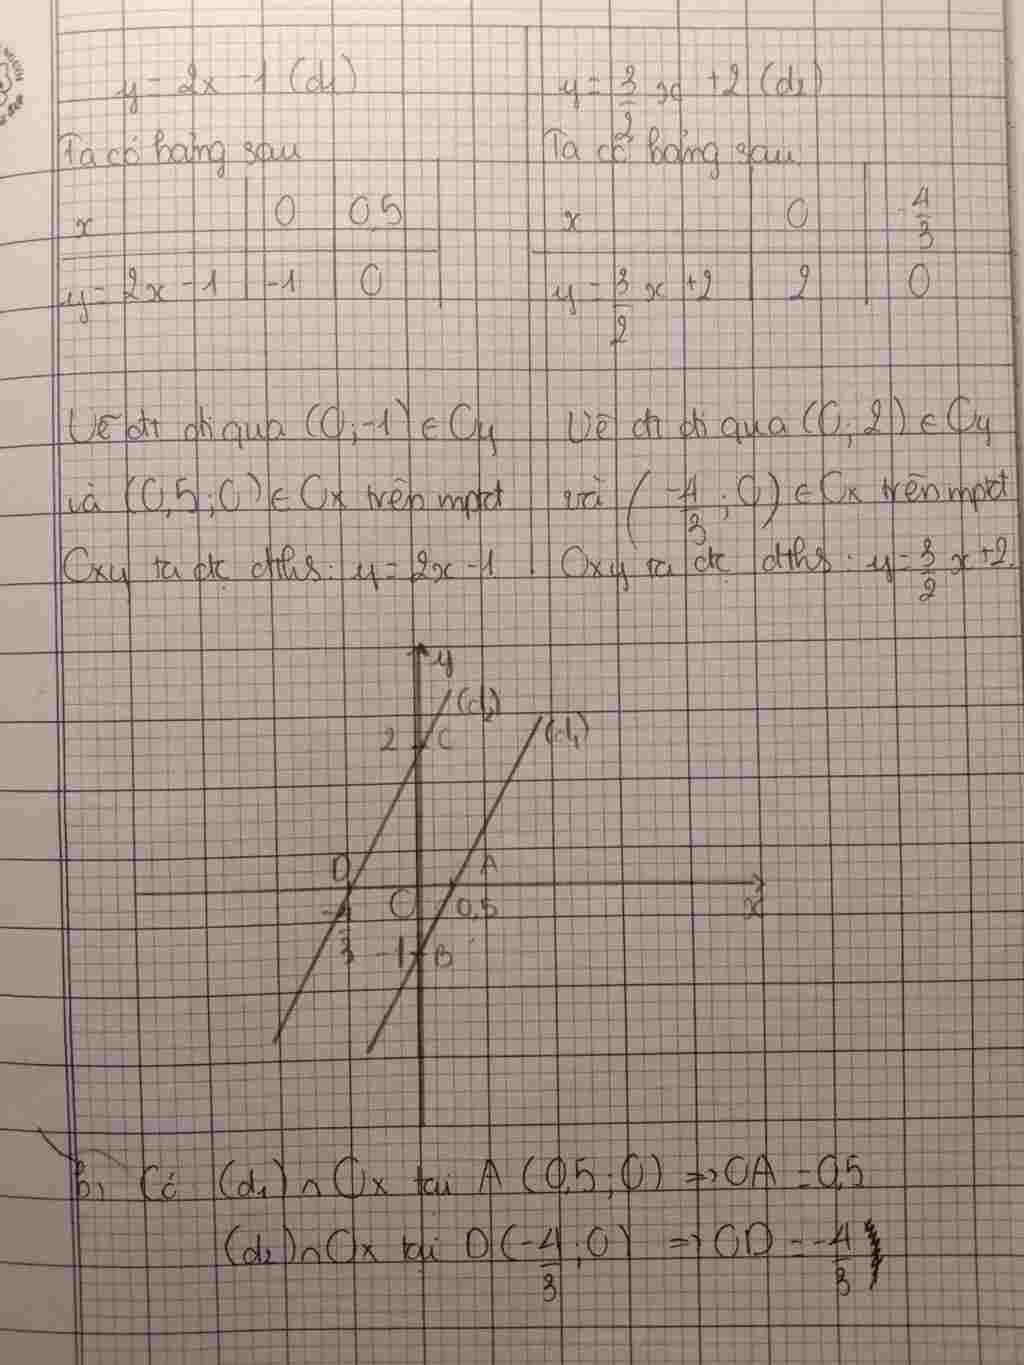 y = 2x - 1 (d₁)
Ta có bảng sau
x 0 0,5
y = 2x - 1 -1 0
Vẽ đt đi qua (0; -1) ∈ Oy
và (0,5; 0) ∈ Ox trên mptđ
Oxy ta đc đths: y = 2x - 1
y = 3/2 x + 2 (d₂)
Ta có bảng sau
x 0 -4/3
y = 3/2 x + 2 2 0
Vẽ đt đi qua (0; 2) ∈ Oy
và (-4/3; 0) ∈ Ox trên mptđ
Oxy ta đc đths: y = 3/2 x + 2.
y
(d₂)
2 C (d₁)
D A
-4/3 O 0,5 x
-1 B
b, Có (d₁) ∩ Ox tại A (0,5; 0) => OA = 0,5
(d₂) ∩ Ox tại D (-4/3; 0) => OD = -4/3